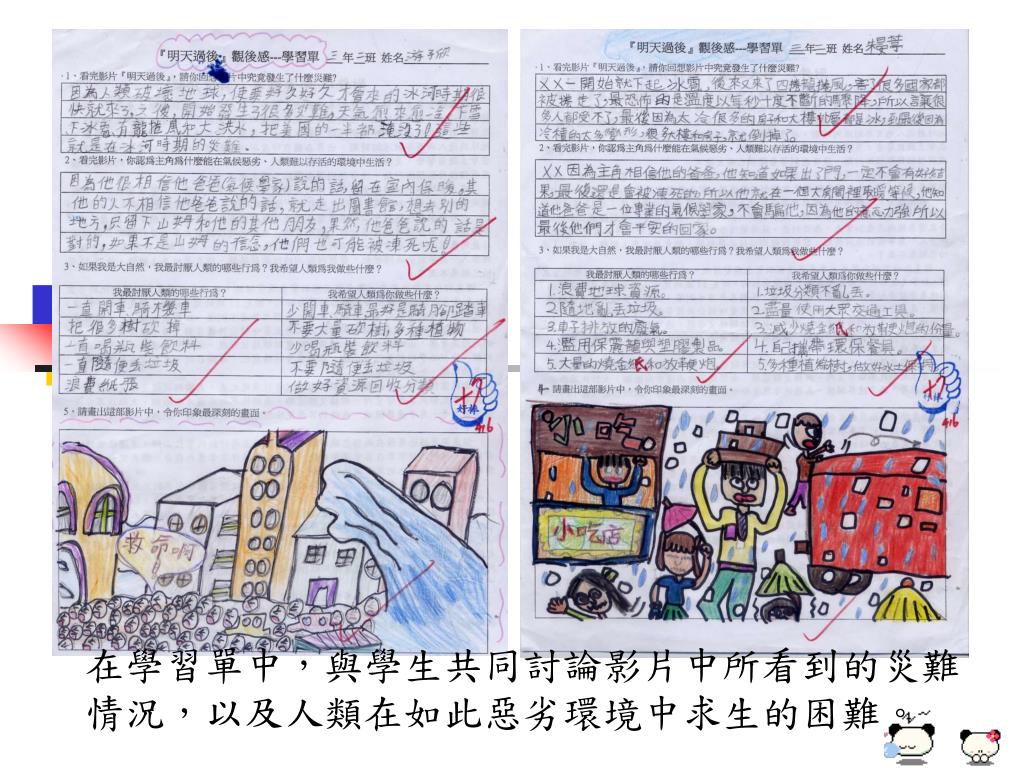 『明天過後』觀後感---學習單 三 年二班 姓名游子欣
1、看完影片『明天過後』，請你回想影片中究竟發生了什麼災難?
因為人類破壞地球，使要好久好久才會來的冰河時期很
快就來了，之後，開始發生了很多災難，天氣愈來愈冷、下雪
下冰雹、有龍捲風和大洪水，把美國的一半都淹沒了!這些
就是在冰河時期的災難。
2、看完影片，你認為主角為什麼能在氣候惡劣、人類難以存活的環境中生活?
因為他很相信他爸爸(氣候學家)說的話，留在室內保暖，其
他的人不相信他爸爸說的話，就走出圖書館，想去別的
地方，只留下山姆和他的其他朋友，果然他爸爸說的話是
對的，如果不是山姆的信念，他們也可能被凍死呢!
3、如果我是大自然，我最討厭人類的哪些行為?我希望人類為我做些什麼?
我最討厭人類的哪些行為? 我希望人類為你做些什麼?
一直開車、騎機車 少開車、騎車，最好是騎腳踏車
把很多樹砍掉 不要大量砍樹，多種植物
一直喝瓶裝飲料 少喝瓶裝飲料
一直隨便丟垃圾 不要隨便丟垃圾
浪費紙張 做好資源回收分類
5、請畫出這部影片中，令你印象最深刻的畫面。
+7
好棒
4/6
救命啊
『明天過後』觀後感---學習單 三年二班 姓名
1、看完影片『明天過後』，請你回想影片中究竟發生了什麼災難?
XX一開始就下起冰雹，後來又來了四個龍捲風，害了很多國家都
被捲走了，最恐怖的是溫度以每秒十度不斷的驟降，所以害很
多人都受不了，最後因為太冷很多的房和大樓都是冰，到最後因為
冷
2、看完影片，你認為主角為什麼能在氣候惡劣、人類難以存活的環境中生活?
XX因為主角相信他的爸爸，他知道如果出了門，一定不會有好結
果，最後還是會被凍死的所以他就在一個大房間裡取暖等候，他知
道他爸爸是一位專業的氣候學家，不會騙他，因為他的意志力強所以
最後他們才會平安的回家。
3、如果我是大自然，我最討厭人類的哪些行為?我希望人類為我做些什麼?
我最討厭人類的哪些行為? 我希望人類為你做些什麼?
1.浪費地球資源。 1.垃圾分類不亂丟。
2.隨地亂丟垃圾。 2.盡量使用大眾交通工具。
3.車子排放的廢氣。 3.減少燒金紙和放鞭炮的份量。
4.濫用保麗龍與塑膠製品。 4.自攜帶環保餐具。
5.大量的燒金紙和放鞭炮 5.多種植樹，做好水土保持
4、請畫出這部影片中，令你印象最深刻的畫面
+7
4/6
小吃
小吃店
在學習單中，與學生共同討論影片中所看到的災難
情況，以及人類在如此惡劣環境中求生的困難。